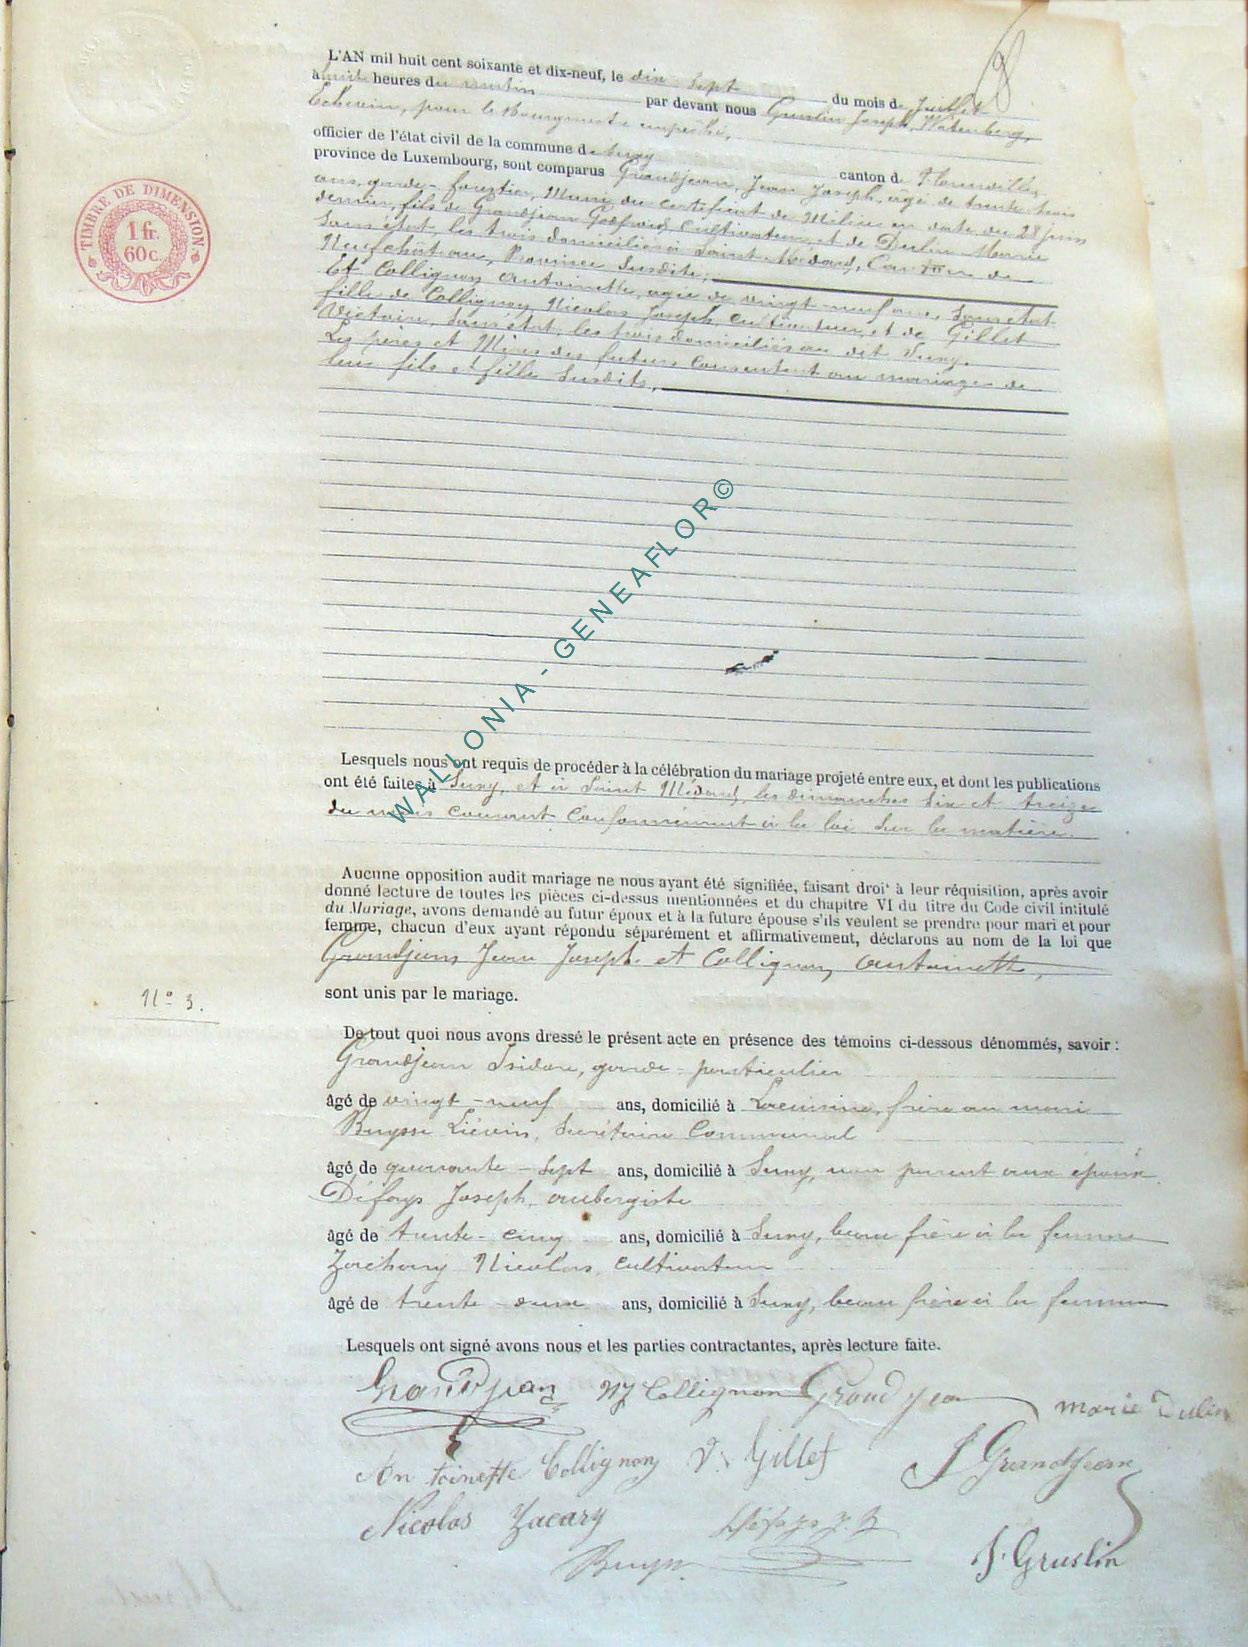 L'AN mil huit cent soixante et dix-neuf, le dix-sept du mois de Juillet
à huit heures du matin par devant nous Gruslin Joseph,
Echevin, pour le Bourgmestre empêché,
officier de l'état civil de la commune de Suxy canton de
province de Luxembourg, sont comparus Grandjean, Jean Joseph, âgé de trente trois
ans, garde-forestier, Muni du certificat de Milice en date du 28 juin
dernier, fils de Grandjean Godfroid, Cultivateur, et de Dulin Marie
Sans état, les trois domiciliés à Saint-Médard, Canton de
Neufchâteau, Province susdite,
Et Collignon Antoinette, âgée de vingt neuf ans, sans état
fille de Collignon Nicolas Joseph, cultivateur, et de Gillet
Victoire, sans état, les trois domiciliés au dit Suxy.
Les pères et Mères des futurs consentent au mariage de
leur fils et fille susdits,
TIMBRE DE DIMENSION
1 fr.
60 c.
WALLONIA - GENEAFLOR©
Lesquels nous ont requis de procéder à la célébration du mariage projeté entre eux, et dont les publications
ont été faites à Suxy, et à Saint Médard, les dimanches six et treize
du mois courant conformément à la loi sur la matière.
Aucune opposition audit mariage ne nous ayant été signifiée, faisant droit à leur réquisition, après avoir
donné lecture de toutes les pièces ci-dessus mentionnées et du chapitre VI du titre du Code civil intitulé
du Mariage, avons demandé au futur époux et à la future épouse s'ils veulent se prendre pour mari et pour
femme, chacun d'eux ayant répondu séparément et affirmativement, déclarons au nom de la loi que
Grandjean Jean Joseph et Collignon Antoinette,
sont unis par le mariage.
N° 3.
De tout quoi nous avons dressé le présent acte en présence des témoins ci-dessous dénommés, savoir :
Grandjean Isidore, garde-particulier
âgé de vingt-neuf ans, domicilié à Lacuisine, frère au mari
Buysse Liévin, Secrétaire Communal
âgé de quarante-sept ans, domicilié à Suxy, non parent aux époux
Défays Joseph, aubergiste
âgé de trente-cinq ans, domicilié à Suxy, beau frère à la femme
Zachary Nicolas, cultivateur
âgé de trente-deux ans, domicilié à Suxy, beau frère à la femme
Lesquels ont signé avons nous et les parties contractantes, après lecture faite.
Grandjean NJ Collignon Grandjean marie Dulin
Antoinette Collignon V. Gillet J Grandjean
Nicolas Zacary Défays J. J.
Buysse J. Gruslin